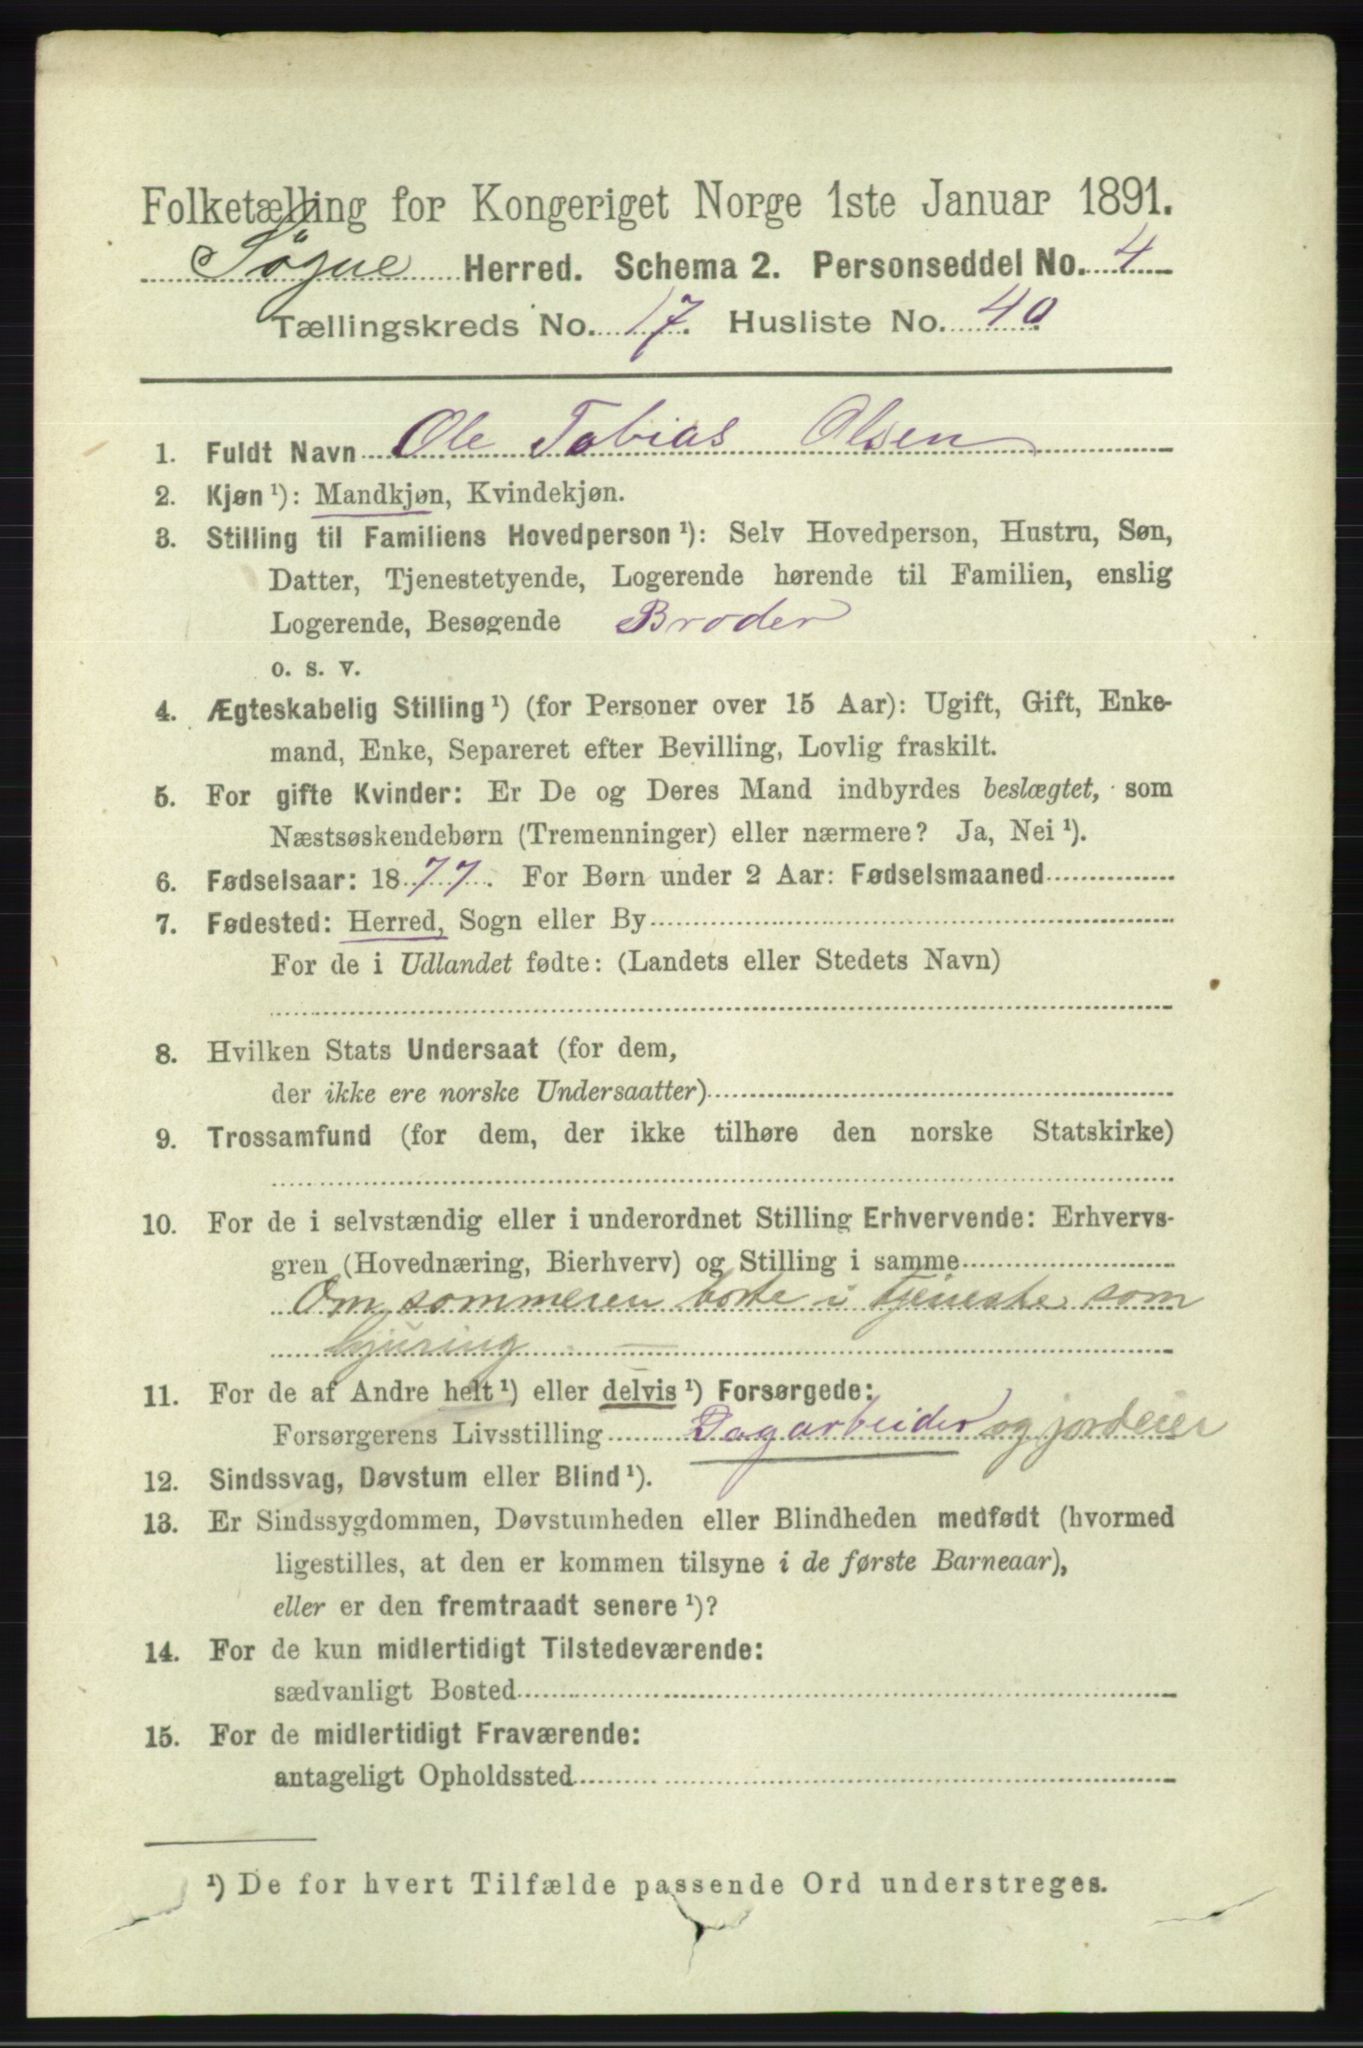 Folketælling for Kongeriget Norge 1ste Januar 1891.
Søgne Herred. Schema 2. Personseddel No. 4
Tællingskreds No. 17. Husliste No. 40
1. Fuldt Navn Ole Tobias Olsen
2. Kjøn ¹): Mandkjøn, Kvindekjøn.
3. Stilling til Familiens Hovedperson ¹): Selv Hovedperson, Hustru, Søn,
Datter, Tjenestetyende, Logerende hørende til Familien, enslig
Logerende, Besøgende Broder
o. s. v.
4. Ægteskabelig Stilling ¹) (for Personer over 15 Aar): Ugift, Gift, Enke-
mand, Enke, Separeret efter Bevilling, Lovlig fraskilt.
5. For gifte Kvinder: Er De og Deres Mand indbyrdes beslægtet, som
Næstsøskendebørn (Tremenninger) eller nærmere? Ja, Nei ¹).
6. Fødselsaar: 1877. For Børn under 2 Aar: Fødselsmaaned
7. Fødested: Herred, Sogn eller By
For de i Udlandet fødte: (Landets eller Stedets Navn)
8. Hvilken Stats Undersaat (for dem,
der ikke ere norske Undersaatter)
9. Trossamfund (for dem, der ikke tilhøre den norske Statskirke)
10. For de i selvstændig eller i underordnet Stilling Erhvervende: Erhvervs-
gren (Hovednæring, Bierhverv) og Stilling i samme
Om sommeren borte i tjeneste som
hjuring —
11. For de af Andre helt ¹) eller delvis ¹) Forsørgede:
Forsørgerens Livsstilling Dagarbeider og jordeier
12. Sindssvag, Døvstum eller Blind ¹).
13. Er Sindssygdommen, Døvstumheden eller Blindheden medfødt (hvormed
ligestilles, at den er kommen tilsyne i de første Barneaar),
eller er den fremtraadt senere ¹)?
14. For de kun midlertidigt Tilstedeværende:
sædvanligt Bosted
15. For de midlertidigt Fraværende:
antageligt Opholdssted
¹) De for hvert Tilfælde passende Ord understreges.